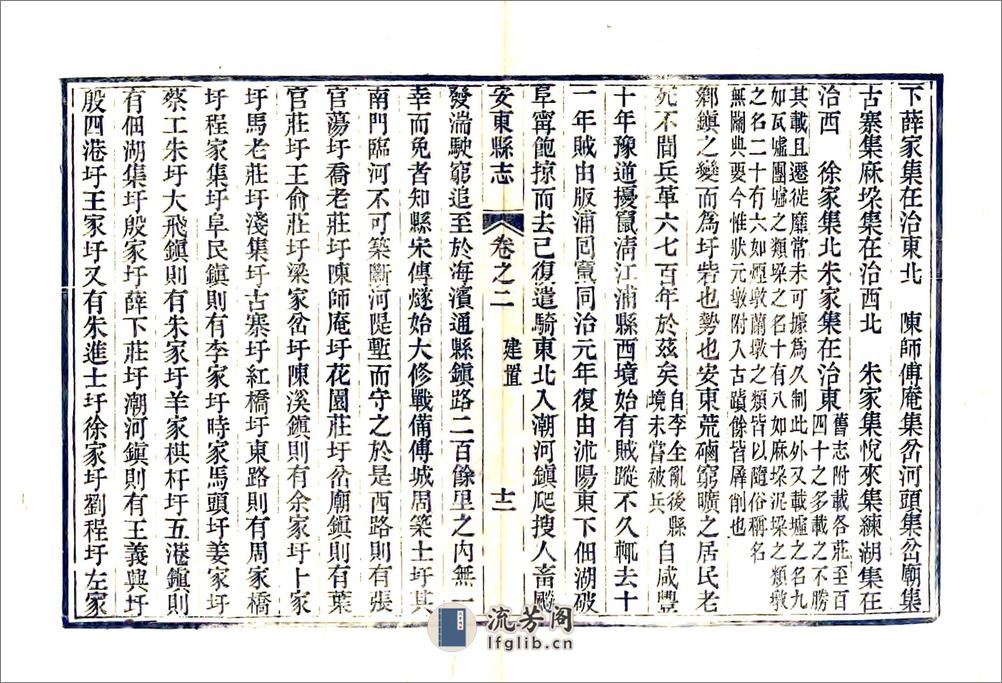 下薛家集在治東北　陳師傅庵集岔河頭集岔廟集
古寨集麻垛集在治西北　朱家集悅來集練湖集在
治西　徐家集北朱家集在治東舊志附載各莊至百
四十之多載之不勝
其載且遷徙靡常未可據爲久制此外又載墟之名九
如瓦墟團墟之類垛之名十有八如麻垛泥垛之類墩
之名二十有六如煙墩蘭墩之類皆以隨俗稱名
無關典要今惟狀元墩附入古蹟餘皆屏削也
鄉鎮之變而爲圩砦也勢也安東荒磽窮曠之居民老
死不聞兵革六七百年於茲矣自李全亂後縣
境未嘗被兵自咸豐
十年豫道擾竄淸江浦縣西境始有賊蹤不久輒去十
一年賊由版浦囘竄同治元年復由沭陽東下佃湖破
阜寧飽掠而去已復遣騎東北入潮河鎮爬搜人畜毆
安東縣志　卷之二　建置　十二
發湍駛窮追至於海濱通縣鎮路二百餘里之內無一
幸而免者知縣宋傳燧始大修戰備傅城周築土圩其
南門臨河不可築斷河隄塹而守之於是西路則有張
官蕩圩喬老莊圩陳師庵圩花園莊圩岔廟鎮則有葉
官莊圩王俞莊圩梁家岔圩陳溪鎮則有余家圩卜家
圩馬老莊圩淺集圩古寨圩紅橋圩東路則有周家橋
圩程家集圩阜民鎮則有李家圩時家馬頭圩姜家圩
蔡工朱圩大飛鎮則有朱家圩羊家棋杆圩五港鎮則
有佃湖集圩殷家圩薛下莊圩潮河鎮則有王義興圩
殷四港圩王家圩又有朱進士圩徐家圩劉程圩左家
流芳阁
lfglib.cn